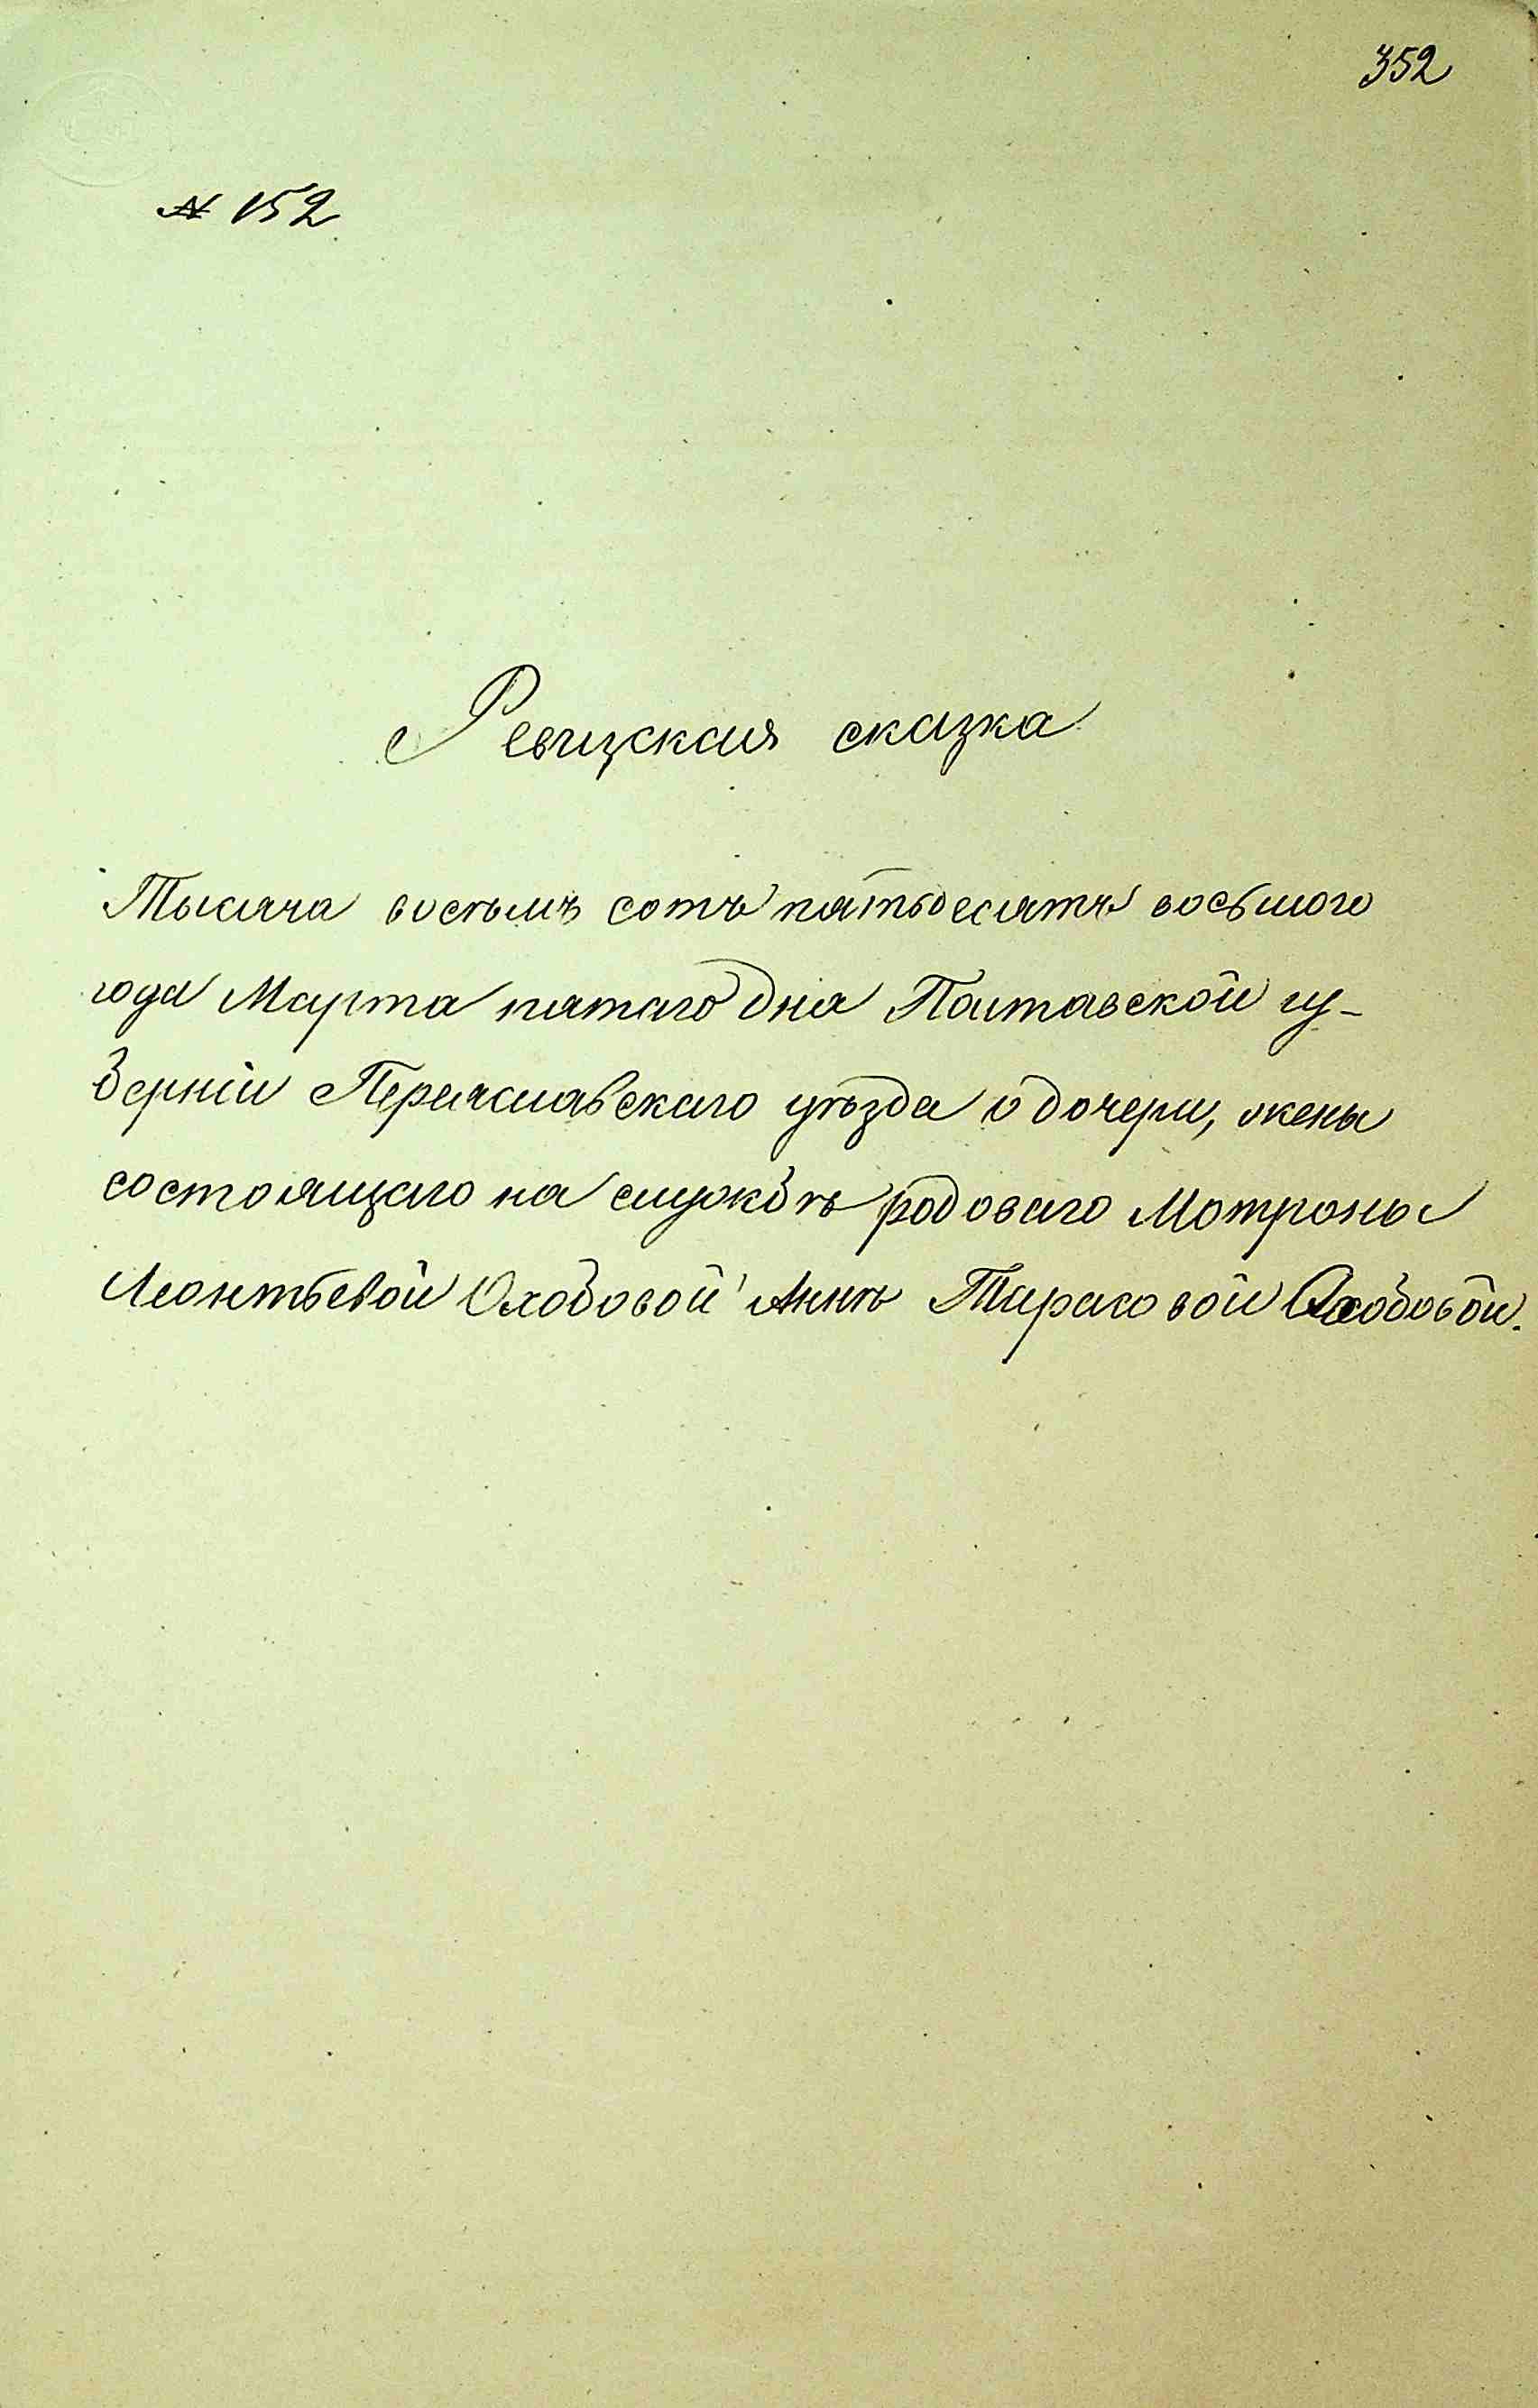 352
№ 152
Ревизская сказка
Тысяча восемь сотъ пятьдесятъ восьмого
года Марта пятаго дня Полтавской гу-
берніи Переяславскаго уѣзда о дочери, жены
состоящаго на службѣ родоваго Мотроны
Леонтьевой Охобовой Аннѣ Тарасовой Охобовой.